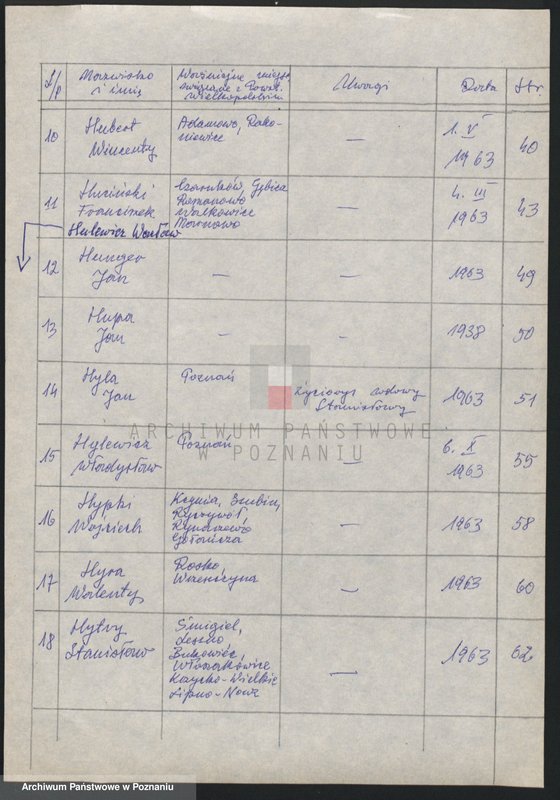 L/p Nazwisko i imię Ważniejsze miejsc. związane z Powst. Wielkopolskim Uwagi Data Str.
10 Hubert Wincenty Adamowo, Rakoniewice — 1. V 1963 40
11 Huziński Franciszek Czarnków, Gębice Romanowo Walkowice — 4. III 1963 43
Hulewicz Wacław
12 Jan — — 1963 49
13 Hupa Jan — — 1938 50
14 Hyla Jan Poznań Życiorys 1963 51
15 Hylewicz Władysław Poznań — 6. X 1963 55
16 Hypki Wojciech Kcynia, Szubin, Ryczywół Rynarzewo Gołańcza — 1963 58
17 Hyra Walenty Rosko, — 1963 60
18 Stanisław Śmigiel, Leszno Bukowiec, Włoszakowice Lipno-Nowe — 1963 62
ARCHIWUM PAŃSTWOWE
W POZNANIU
Archiwum Państwowe w Poznaniu